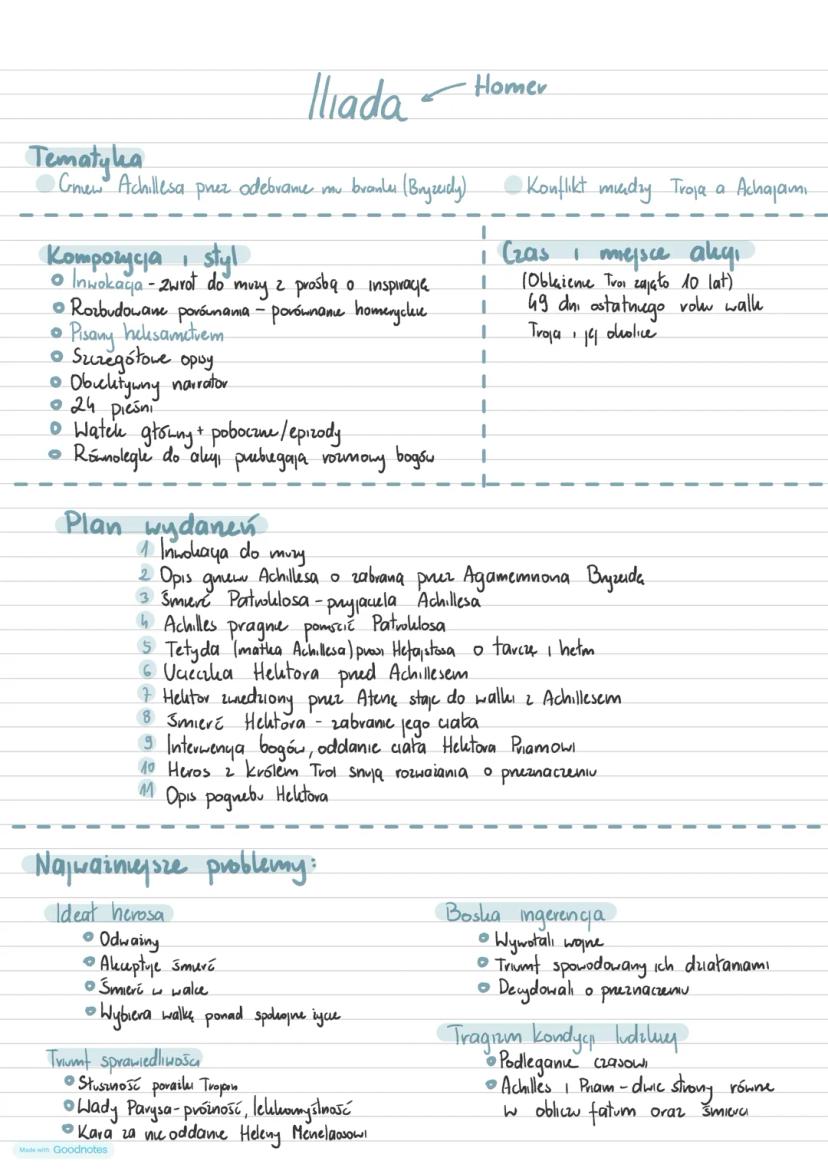 Iliada ← Homer
Tematyka
Gniew Achillesa przez odebranie mu branki (Bryzeidy)
Konflikt między Troją a Achajami
Kompozycja i styl
Inwokacja - zwrot do muzy z prośbą o inspirację
Rozbudowane porównania - porównanie homeryckie
Pisany heksametrem
Szczegółowe opisy
Obiektywny narrator
24 pieśni
Wątek główny + poboczne/epizody
Równolegle do akcji przebiegają rozmowy bogów
Czas i miejsce akcji
(Oblężenie Troi zajęło 10 lat)
49 dni ostatniego roku walk
Troja i jej okolice
Plan wydarzeń
1 Inwokacja do muzy
2 Opis gniewu Achillesa o zabraną przez Agamemnona Bryzeidę
3 Śmierć Patroklosa - przyjaciela Achillesa
4 Achilles pragnie pomścić Patroklosa
5 Tetyda (matka Achillesa) prosi Hefajstosa o tarczę i hełm
6 Ucieczka Hektora przed Achillesem
7 Hektor zwiedziony przez Atenę staje do walki z Achillesem
8 Śmierć Hektora - zabranie jego ciała
9 Interwencja bogów, oddanie ciała Hektora Priamowi
10 Heros z królem Troi snują rozważania o przeznaczeniu
11 Opis pogrzebu Hektora
Najważniejsze problemy:
Ideał herosa
Odważny
Akceptuje śmierć
Śmierć w walce
Wybiera walkę ponad spokojne życie
Triumf sprawiedliwości
Słuszność porażki Trojan
Wady Parysa - próżność, lekkomyślność
Kara za nie oddanie Heleny Menelaosowi
Boska ingerencja
Wywołali wojnę
Triumf spowodowany ich działaniami
Decydowali o przeznaczeniu
Tragizm kondycji ludzkiej
Podleganie czasowi
Achilles i Priam - dwie strony równe
w obliczu fatum oraz śmierci
Made with Goodnotes